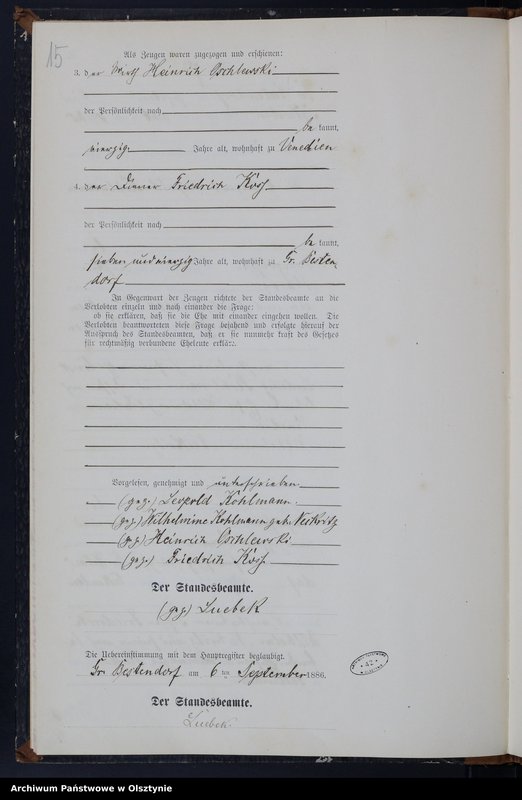 15
Als Zeugen waren zugezogen und erschienen:
3. der Wirth Heinrich Oschlewski
der Persönlichkeit nach
be kannt,
vierzig Jahre alt, wohnhaft zu Venedien
4. der Diener Friedrich
der Persönlichkeit nach
be kannt,
sieben und vierzig Jahre alt, wohnhaft zu Gr. Besten
dorf
In Gegenwart der Zeugen richtete der Standesbeamte an die
Verlobten einzeln und nach einander die Frage:
ob sie erklären, daß sie die Ehe mit einander eingehen wollen. Die
Verlobten beantworteten diese Frage bejahend und erfolgte hierauf der
Ausspruch des Standesbeamten, daß er sie nunmehr kraft des Gesetzes
für rechtmäßig verbundene Eheleute erkläre.
Vorgelesen, genehmigt und unterschrieben
(gez.) Leopold Kohlmann.
(gez.) Wilhelmine Kohlmann geb.
(gez.) Heinrich Oschlewski
(gez.) Friedrich
Der Standesbeamte.
(gez) Luebek
Die Uebereinstimmung mit dem Hauptregister beglaubigt.
Gr. Bestendorf am 6 ten September 1886.
Der Standesbeamte.
Luebek.
Archiwum Państwowe w Olsztynie